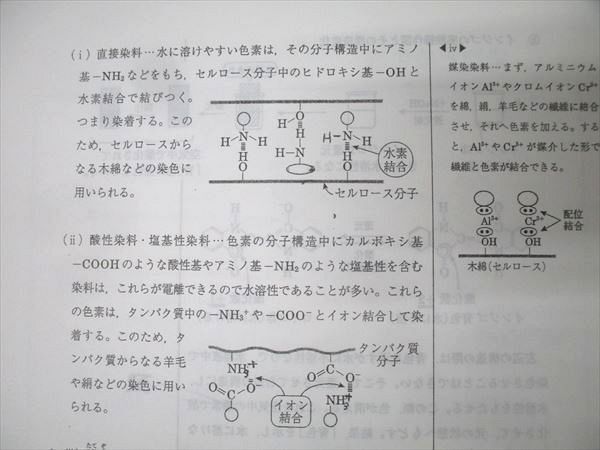 (i) 直接染料…水に溶けやすい色素は，その分子構造中にアミノ
基−NH₂などをもち，セルロース分子中のヒドロキシ基−OHと
水素結合で結びつく。
つまり染着する。この
ため，セルロースから
なる木綿などの染色に
用いられる。
H N H
O
H
H N
H N H
H
O
H
O
水素
結合
セルロース分子
(ii) 酸性染料・塩基性染料…色素の分子構造中にカルボキシ基
−COOHのような酸性基やアミノ基−NH₂のような塩基性を含む
染料は，これらが電離できるので水溶性であることが多い。これら
の色素は，タンパク質中の−NH₃⁺や−COO⁻とイオン結合して染
着する。このため，タ
ンパク質からなる羊毛
や絹などの染色に用い
られる。
タンパク質
分子
NH₃⁺
O C O⁻
O C O⁻
NH₃⁺
イオン
結合
◀iv▶
媒染染料…まず，アルミニウム
イオンAl³⁺やクロムイオンCr³⁺
を綿，絹，羊毛などの繊維に結合
させ，それへ色素を加える。する
と，Al³⁺やCr³⁺が媒介した形で
繊維と色素が結合できる。
Al³⁺ Cr³⁺
配位
結合
OH OH
木綿(セルロース)